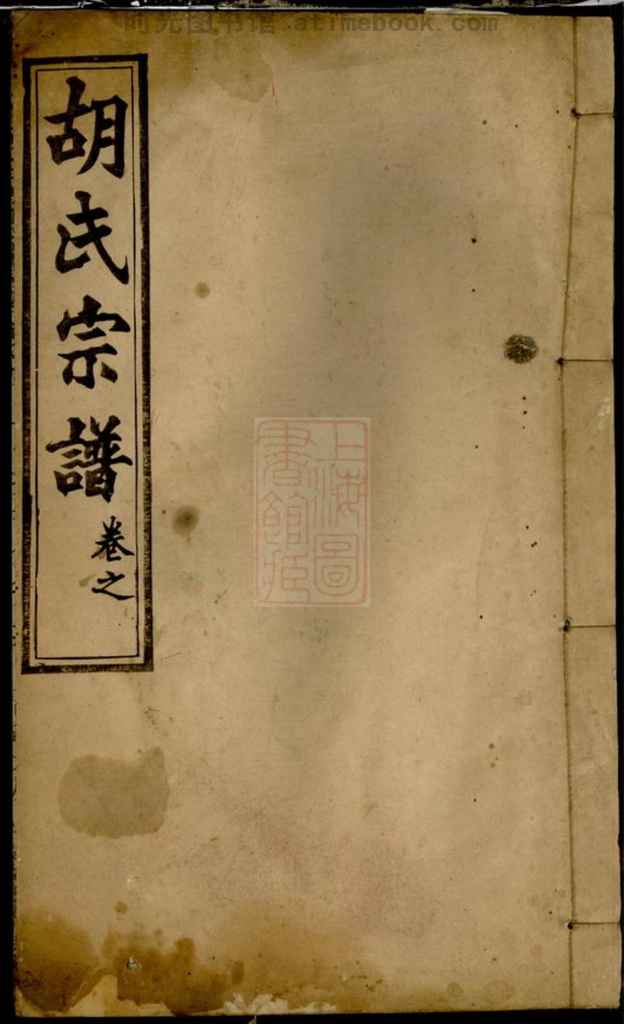 时光图书馆.atimebook.com
胡氏宗譜
卷之
上海圖
書館藏